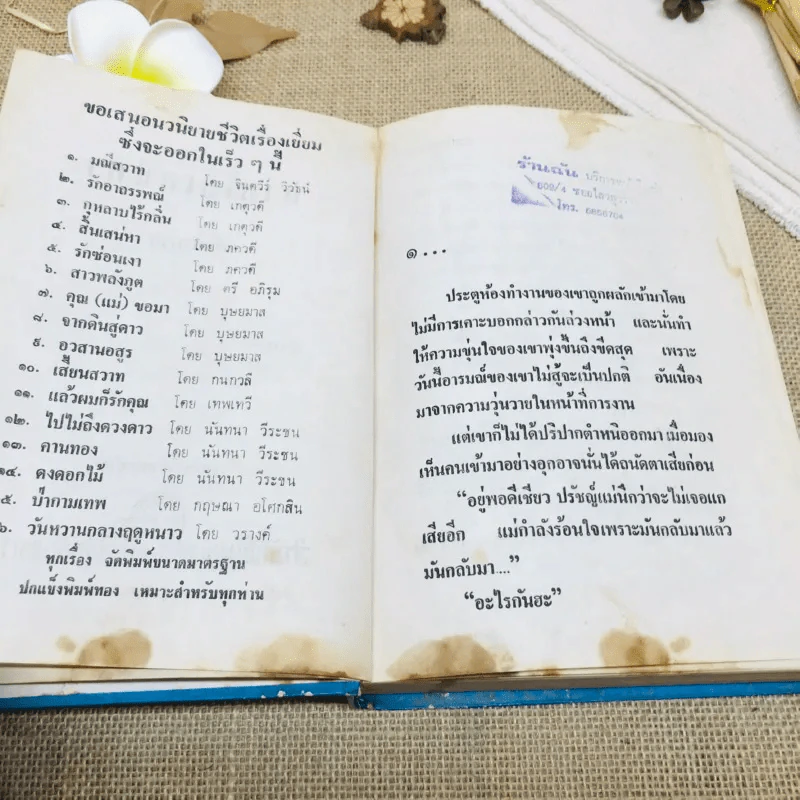 ขอเสนอนวนิยายชีวิตเรื่องเยี่ยม
ซึ่งจะออกในเร็ว ๆ นี้
๑. มณีสวาท โดย จินตวีร์ วิวัธน์
๒. รักอาถรรพณ์ โดย เกตุวดี
๓. กุหลาบไร้กลิ่น โดย เกตุวดี
๔. สิ้นเสน่หา โดย ภควดี
๕. รักซ่อนเงา โดย ภควดี
๖. สาวพลังภูต โดย ตรี อภิรุม
๗. คุณ (แม่) ขอมา โดย บุษยมาส
๘. จากดินสู่ดาว โดย บุษยมาส
๙. อวสานอสูร โดย บุษยมาส
๑๐. เสี้ยนสวาท โดย กนกวลี
๑๑. แล้วผมก็รักคุณ โดย เทพเทวี
๑๒. ไปไม่ถึงดวงดาว โดย นันทนา วีระชน
๑๓. คานทอง โดย นันทนา วีระชน
๑๔. ดงดอกไม้ โดย นันทนา วีระชน
๕. ป่ากามเทพ โดย กฤษณา อโศกสิน
๖. วันหวานกลางฤดูหนาว โดย วรางค์
ทุกเรื่อง จัดพิมพ์ขนาดมาตรฐาน
ปกแข็งพิมพ์ทอง เหมาะสำหรับทุกท่าน
ร้านฉัน
โทร.
๑...
ประตูห้องทำงานของเขาถูกผลักเข้ามาโดย
ไม่มีการเคาะบอกกล่าวกันล่วงหน้า และนั่นทำ
ให้ความขุ่นใจของเขาพุ่งขึ้นถึงขีดสุด เพราะ
วันนี้อารมณ์ของเขาไม่สู้จะเป็นปกติ อันเนื่อง
มาจากความวุ่นวายในหน้าที่การงาน
แต่เขาก็ไม่ได้ปริปากตำหนิออกมา เมื่อมอง
เห็นคนเข้ามาอย่างอุกอาจนั่นได้ถนัดตาเสียก่อน
“อยู่พอดีเชียว ปรัชญ์แม่นึกว่าจะไม่เจอแก
เสียอีก แม่กำลังร้อนใจเพราะมันกลับมาแล้ว
มันกลับมา....”
“อะไรกันฮะ”